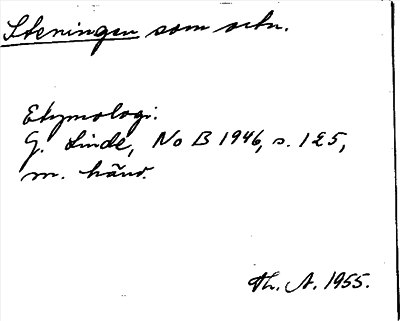 Steningen som ortn.
Etymologi:
G. Linde, NoB 1946, s. 125,
m. hänv.
Th. A. 1955.